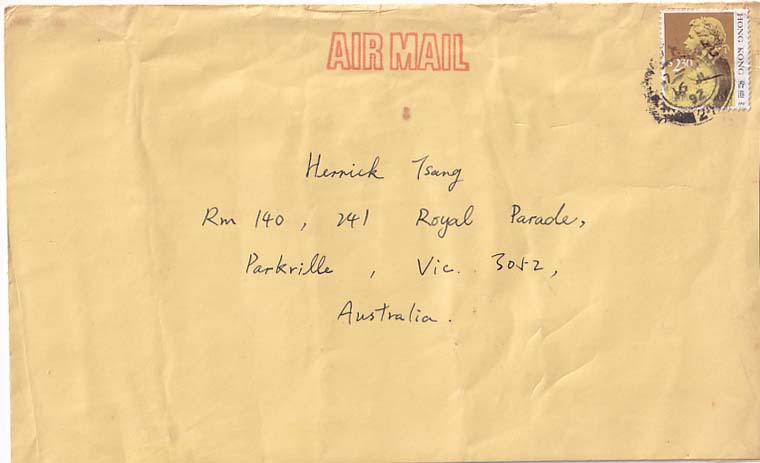 AIR MAIL
HONG KONG 香港
2.30
92
Herrick Tsang
Rm 140, 241 Royal Parade,
Parkville, Vic. 3052,
Australia.